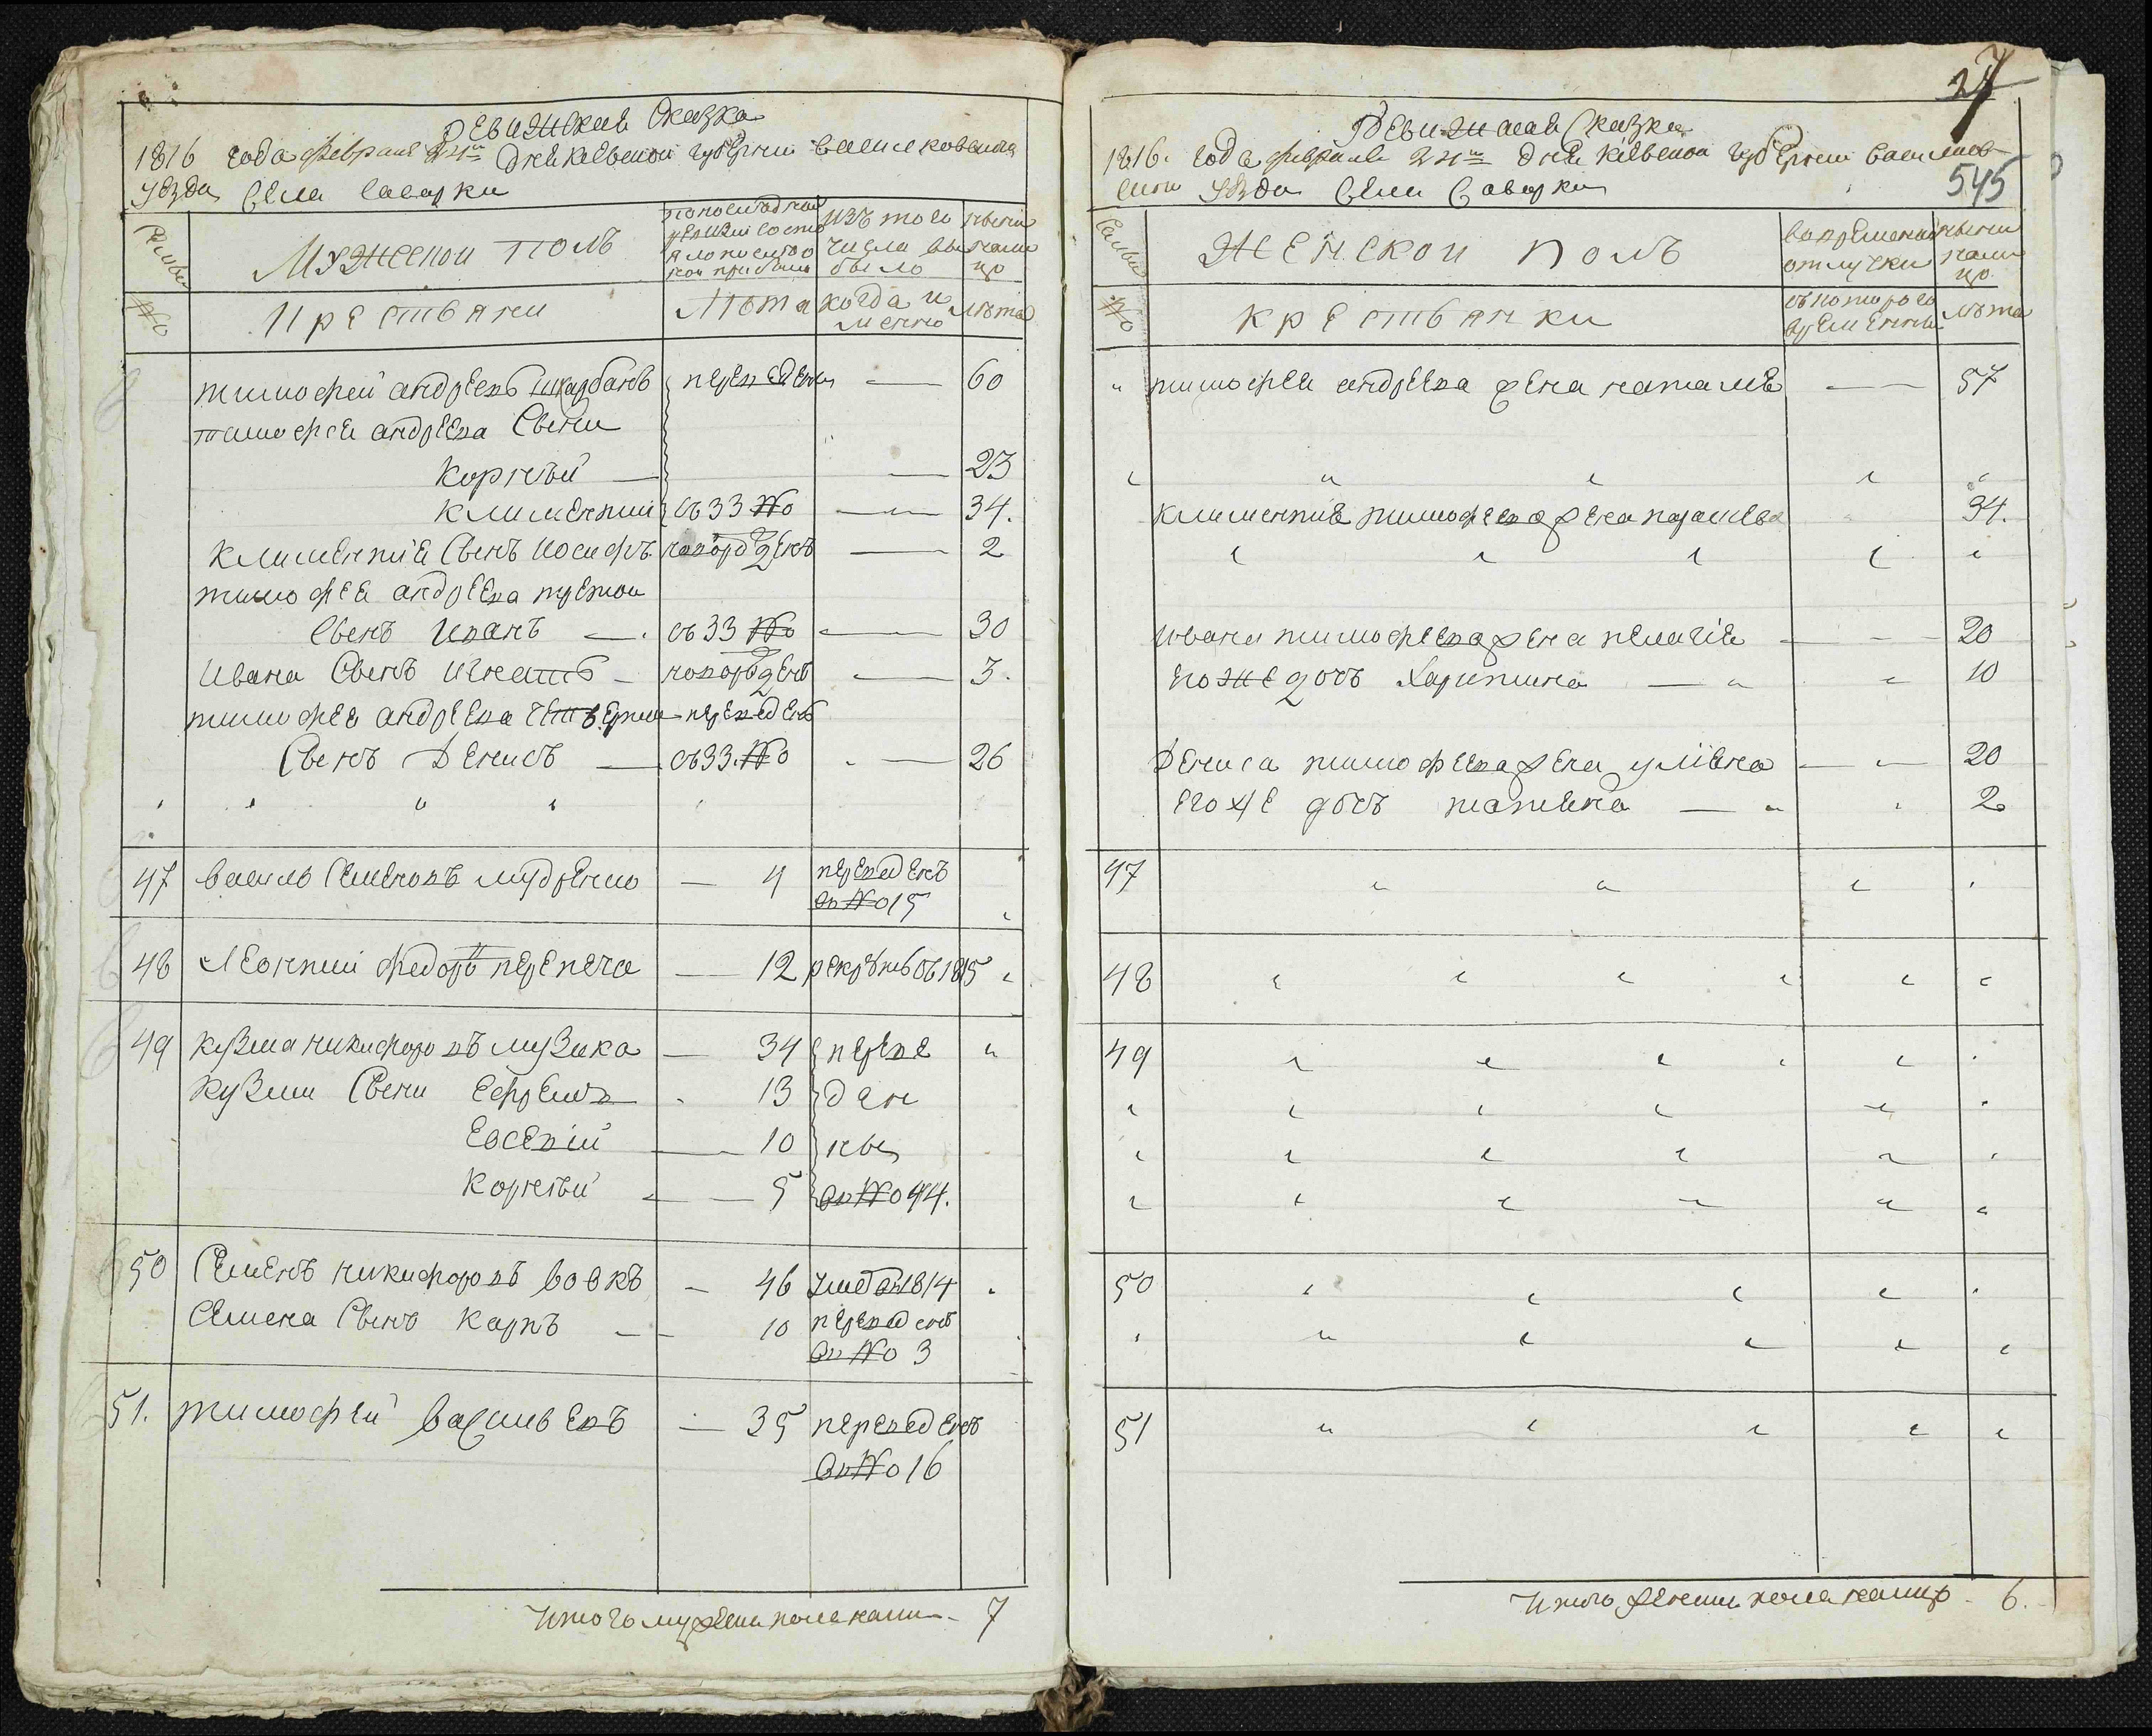 Ревижская Сказка
1816 года февраля 24го дня киевской губернии васильковского
уезда Села Саварки
Семьи
Мужеской полъ
Изъ того числа выбыло
ныне на лицо
№
Крестьяни
Лѣта
когда имянно
лѣта
тимофей андреевъ шкарбанъ переведены — 60
тимофея андреева Сыны
Корнѣй — 23
климентий съ 33 № — 34.
климентия Сынъ иосифъ новорожденъ — 2
тимофея андреева третой
Сынъ Иванъ — съ 33 № — 30
Ивана Сынъ игнатъ — новорожденъ — 3.
тимофея андреева четвертий переведенъ
Сынъ Денисъ — съ 33 № — 26
47 василь Семеновъ мудренко — 4 переведенъ
въ № 15
48 Леонтий федоровъ перепеча — 12 рекрутъ съ 1815
49 Кузма никифоровъ музика — 34 переве
Кузми Сыни Ефремъ 13 ден
Евсевий — 10 ны
Корнѣй — 5 въ № 44.
50 Семенъ никифоровъ вовкъ — 46 умеръ 1814
Семена Сынъ карпъ — 10 переведенъ
въ № 3
51. тимофей васильевъ — 35 переведенъ
въ № 16
Итого мужеска пола на лицо — 7
27
545
Ревижская Сказка
1816. года февраля 24го дня киевской губернии василков
ской уезда Села Саварки
Семьи
Женской полъ
во временной отлучки
ныне на лицо
№
крестьянки
съ которого времены
лѣта
тимофея андреева жена наталия — 57
климентия тимофеева жена параскева 34.
ивана тимофеева жена пелагия — 20
его же дочь Харитина — 10
Дениса тимофеева жена улияна — 20
его же дочь татияна — 2
47
48
49
50
51
Итого женска пола на лицо — 6.